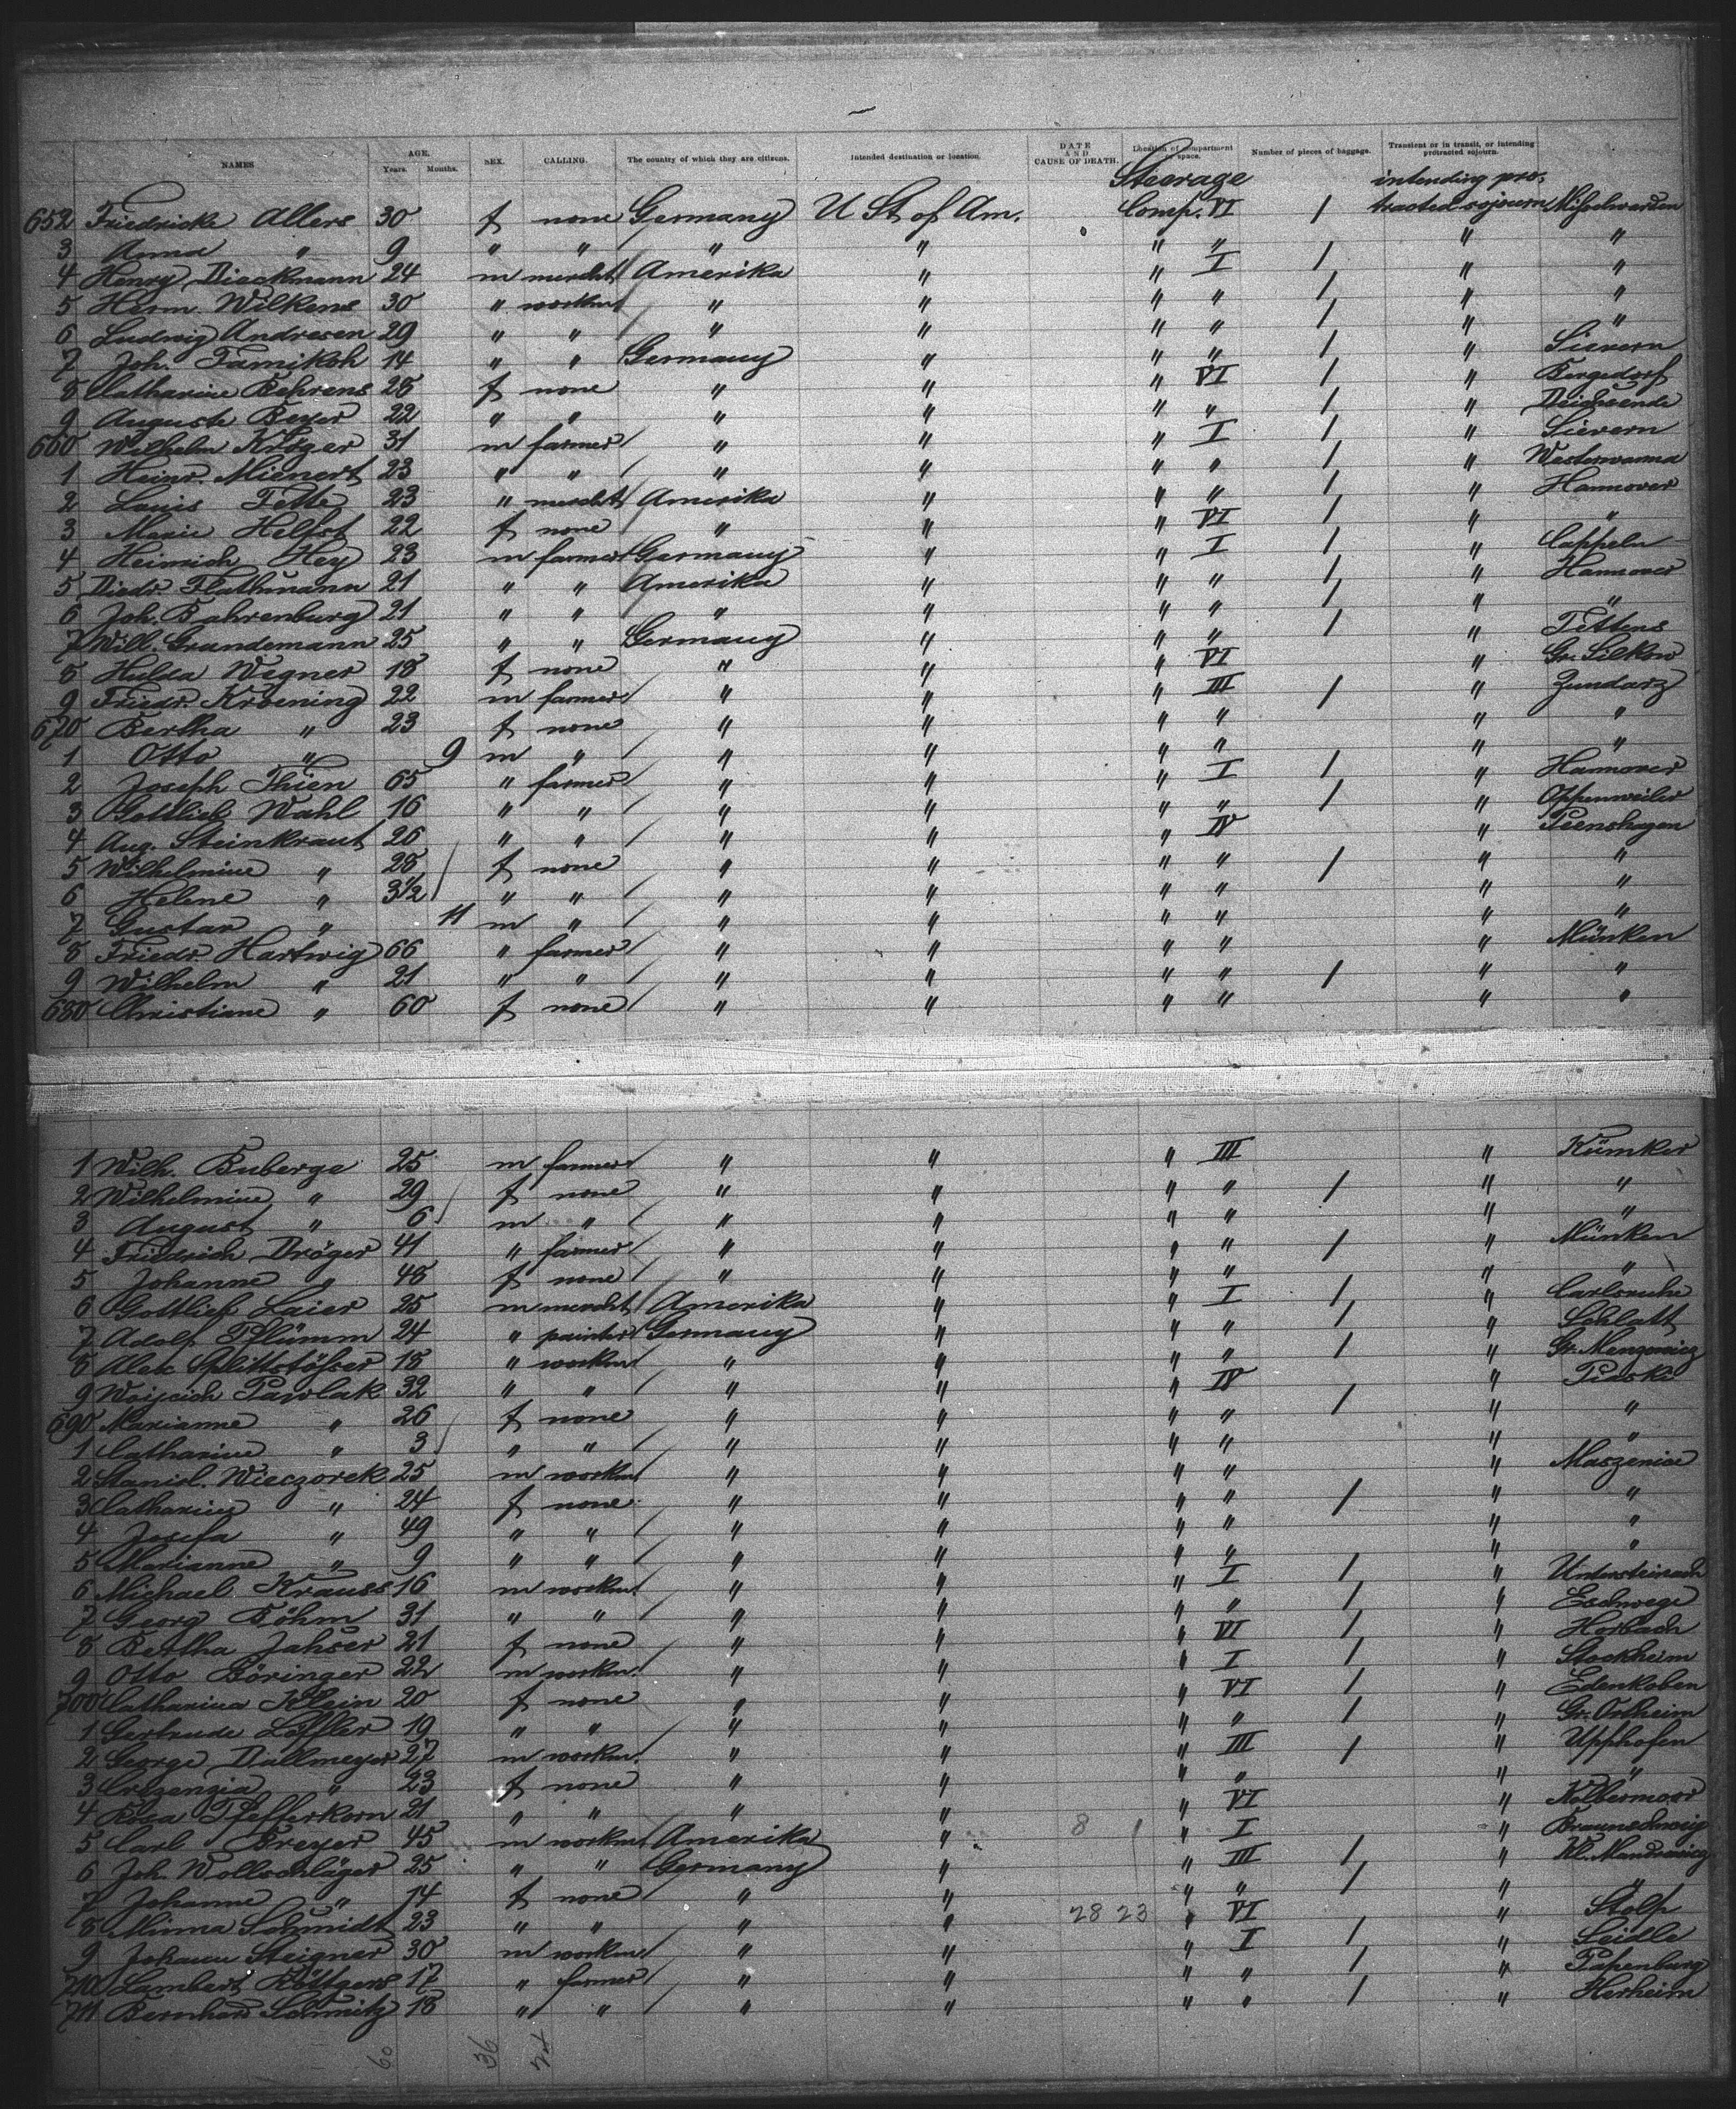 NAMES AGE. Years. Months. SEX. CALLING. The country of which they are citizens. Intended destination or location. DATE AND CAUSE OF DEATH. Location of compartment or space. Number of pieces of baggage. Transient or in transit, or intending protracted sojourn.
Steerage intending pro-
652 Friedricke Allers 30 f none Germany U St of Am. Comp. VI / tracted sojourn Misselwarden
3 Anna " 9 " " " " " " " "
4 Henry Dieckmann 24 m mercht Amerika " " I / " "
5 Herm. Wilkens 30 " workm " " " " / " "
6 Ludwig Andresen 29 " " " " " " / " "
7 Joh. Tamikoh 14 " " Germany " " " / " Sievern
8 Catharine Behrens 28 f none " " " VI / " Bergedorf
9 Auguste Beyer 22 " " " " " " / " Deichsende
660 Wilhelm Kröger 31 m farmer " " " I / " Sievern
1 Heinr. Mienert 23 " " " " " " / " Westerwanna
2 Louis Fette 23 " mercht Amerika " " " / " Hannover
3 Marie Helfst 22 f none " " " VI / " "
4 Heinrich Hey 23 m farmer Germany " " I / " Cappeln
5 Diedr. Flathmann 21 " " Amerika " " " / " Hannover
6 Joh. Bahrenburg 21 " " " " " " / " "
7 Will. Grundemann 25 " " Germany " " " / " Tettens
8 Hulda Wegner 18 f none " " " VI " Gr. Silkow
9 Friedr. Kroening 22 m farmer " " " III / " Zundarz
670 Bertha " 23 f none " " " " " "
1 Otto " 9 m " " " " " " "
2 Joseph Thien 65 " farmer " " " I / " Hannover
3 Gottlieb Wahl 16 " " " " " " / " Oppenweiler
4 Aug. Steinkraut 26 " " " " " IV " Peenshagen
5 Wilhelmine " 28 f none " " " " / " "
6 Helene " 3 1/2 " " " " " " " "
7 Gustav " 11 m " " " " " " "
8 Friedr. Hartwig 66 " farmer " " " " " Münken
9 Wilhelm " 21 " " " " " " / " "
680 Christiane " 60 f none " " " " " "
1 Wilh. Buberge 25 m farmer " " " III " Kümker
2 Wilhelmine " 29 f none " " " " / " "
3 August " 6 m " " " " " " "
4 Friedrich Dröger 41 " farmer " " " " / " Münken
5 Johanne " 48 f none " " " " " "
6 Gottlieb Laier 25 m mercht Amerika " " I / " Carlsruhe
7 Adolf Pflümm 24 " painter Germany " " " / " Schlatt
8 Alex Splittstösser 18 " workm " " " " / " Gr.
9 Woijcich Pawlak 32 " " " " " IV " Piaski
690 Marianne " 26 f none " " " " / " "
1 Catharine " 3 " " " " " " " "
2 Stanisl. Wieczorek 25 m workm " " " " " Maszenice
3 Catharine " 24 f none " " " " / " "
4 Josefa " 49 " " " " " " " "
5 Marianne " 9 " " " " " " " "
6 Michael Krauss 16 m workm " " " I / " Untersteinach
7 Georg Böhm 31 " " " " " " / " Eschwege
8 Bertha Jahser 21 f none " " " VI / " Horbach
9 Otto Göringer 22 m workm. " " " I / " Stockheim
700 Catharina Klein 20 f none " " " VI / " Edenkoben
1 Gertrude Löffler 19 " " " " " " / " Gr. Ostheim
2 George Dallmeyer 27 m workm. " " " III / " Upphofen
3 Crezenzia " 23 f none " " " " " "
4 Rosa Pfefferkorn 21 " " " " " VI " Kolbermoor
5 Carl Breyer 45 m workm Amerika " 8 " I " Braunschweig
6 Joh. Wollschläger 25 " " Germany " " III / " Kl.
7 Johanne " 14 f none " " " " / " "
8 Minna Schmidt 23 " " " " 28 23 " VI " Stolp
9 Johann Steigner 30 m workm " " " I / " Seidle
710 Lambert Röttgers 17 " farmer " " " " / " Papenburg
711 Bernhard Schmitz 18 " " " " " " / " Herheim
60 36 24